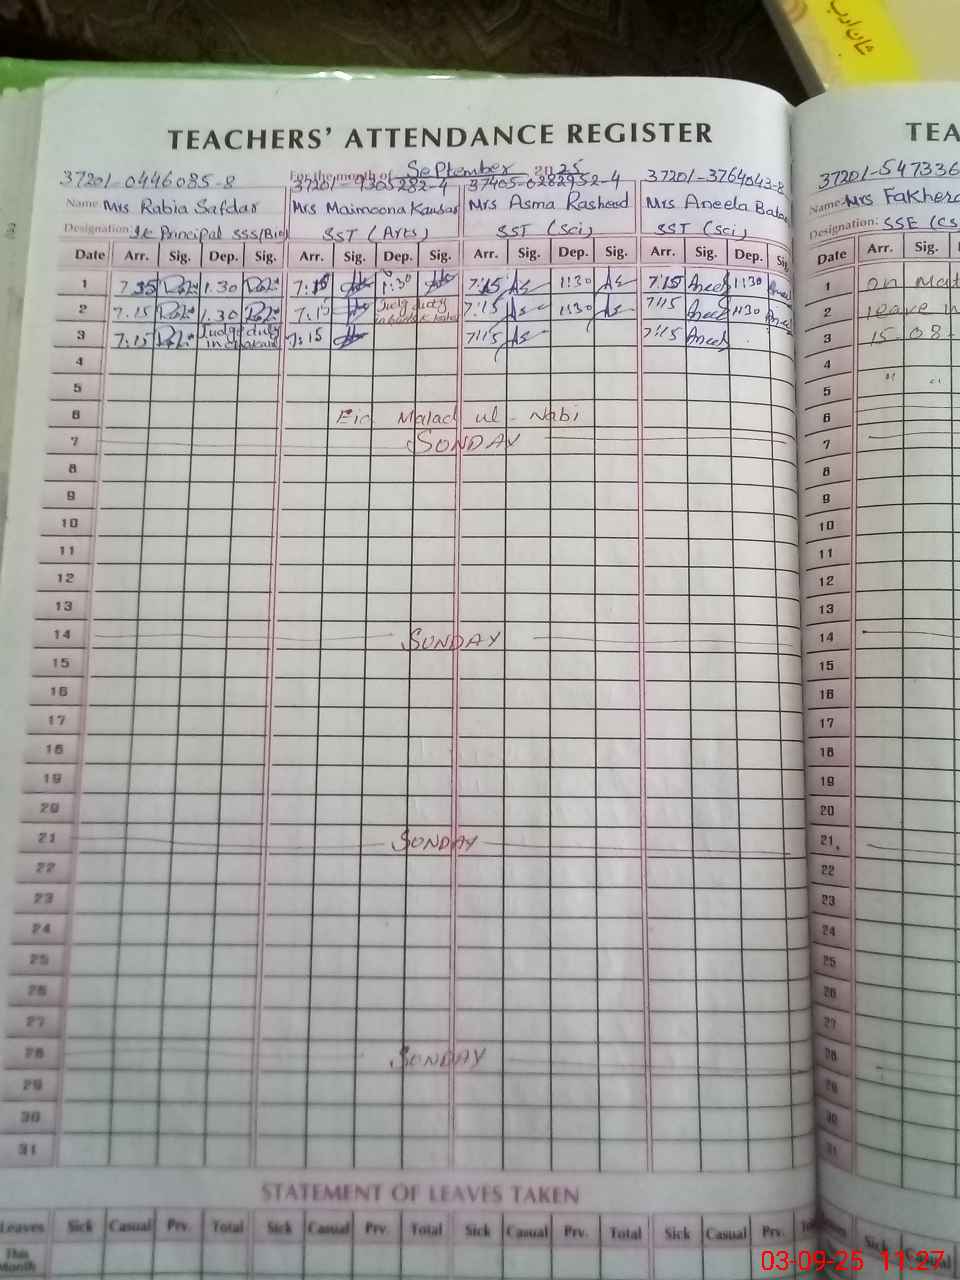 شان ادب
TEACHERS' ATTENDANCE REGISTER
TEA
For the month of September 2025
37201-0446085-8 37201-9305282-4 37405-0282952-4 37201-3764043-8 37201-547336
Name Mrs Rabia Safdar Mrs Maimoona Kausar Mrs Asma Rasheed Mrs Aneela Name Mrs Fakher
Designation Principal SSS(Bio) SST (Arts) SST (Sci) SST (Sci) Designation: SSE (CS
Date Arr. Sig. Dep. Sig. Arr. Sig. Dep. Sig. Arr. Sig. Dep. Sig. Arr. Sig. Dep. Sig Date Arr. Sig.
1 1.30 1:30 7:15 As 1:30 As 7:15 Aneel 1:30 1 on Mat
2 7.15 1.30 7:15 Judg duty 7:15 As 1:30 As 7:15 Aneel 1:30 2 leave
3 7:15 Judge duty 7:15 7:15 As 7:15 Aneel 3 15-08-
in chakwal
4 4
5 5 " "
6 Eid Malad ul-Nabi 6
7 SUNDAY 7
8 8
9 9
10 10
11 11
12 12
13 13
14 SUNDAY 14
15 15
16 16
17 17
18 18
19 19
20 20
21 SUNDAY 21
22 22
23 23
24 24
25 25
26 26
27 27
28 SUNDAY 28
29 29
30 30
31 31
STATEMENT OF LEAVES TAKEN
Leaves Sick Casual Prv. Total Sick Casual Prv. Total Sick Casual Prv. Total Sick Casual Prv. Sick Casual
This Month
03-09-25 11:27